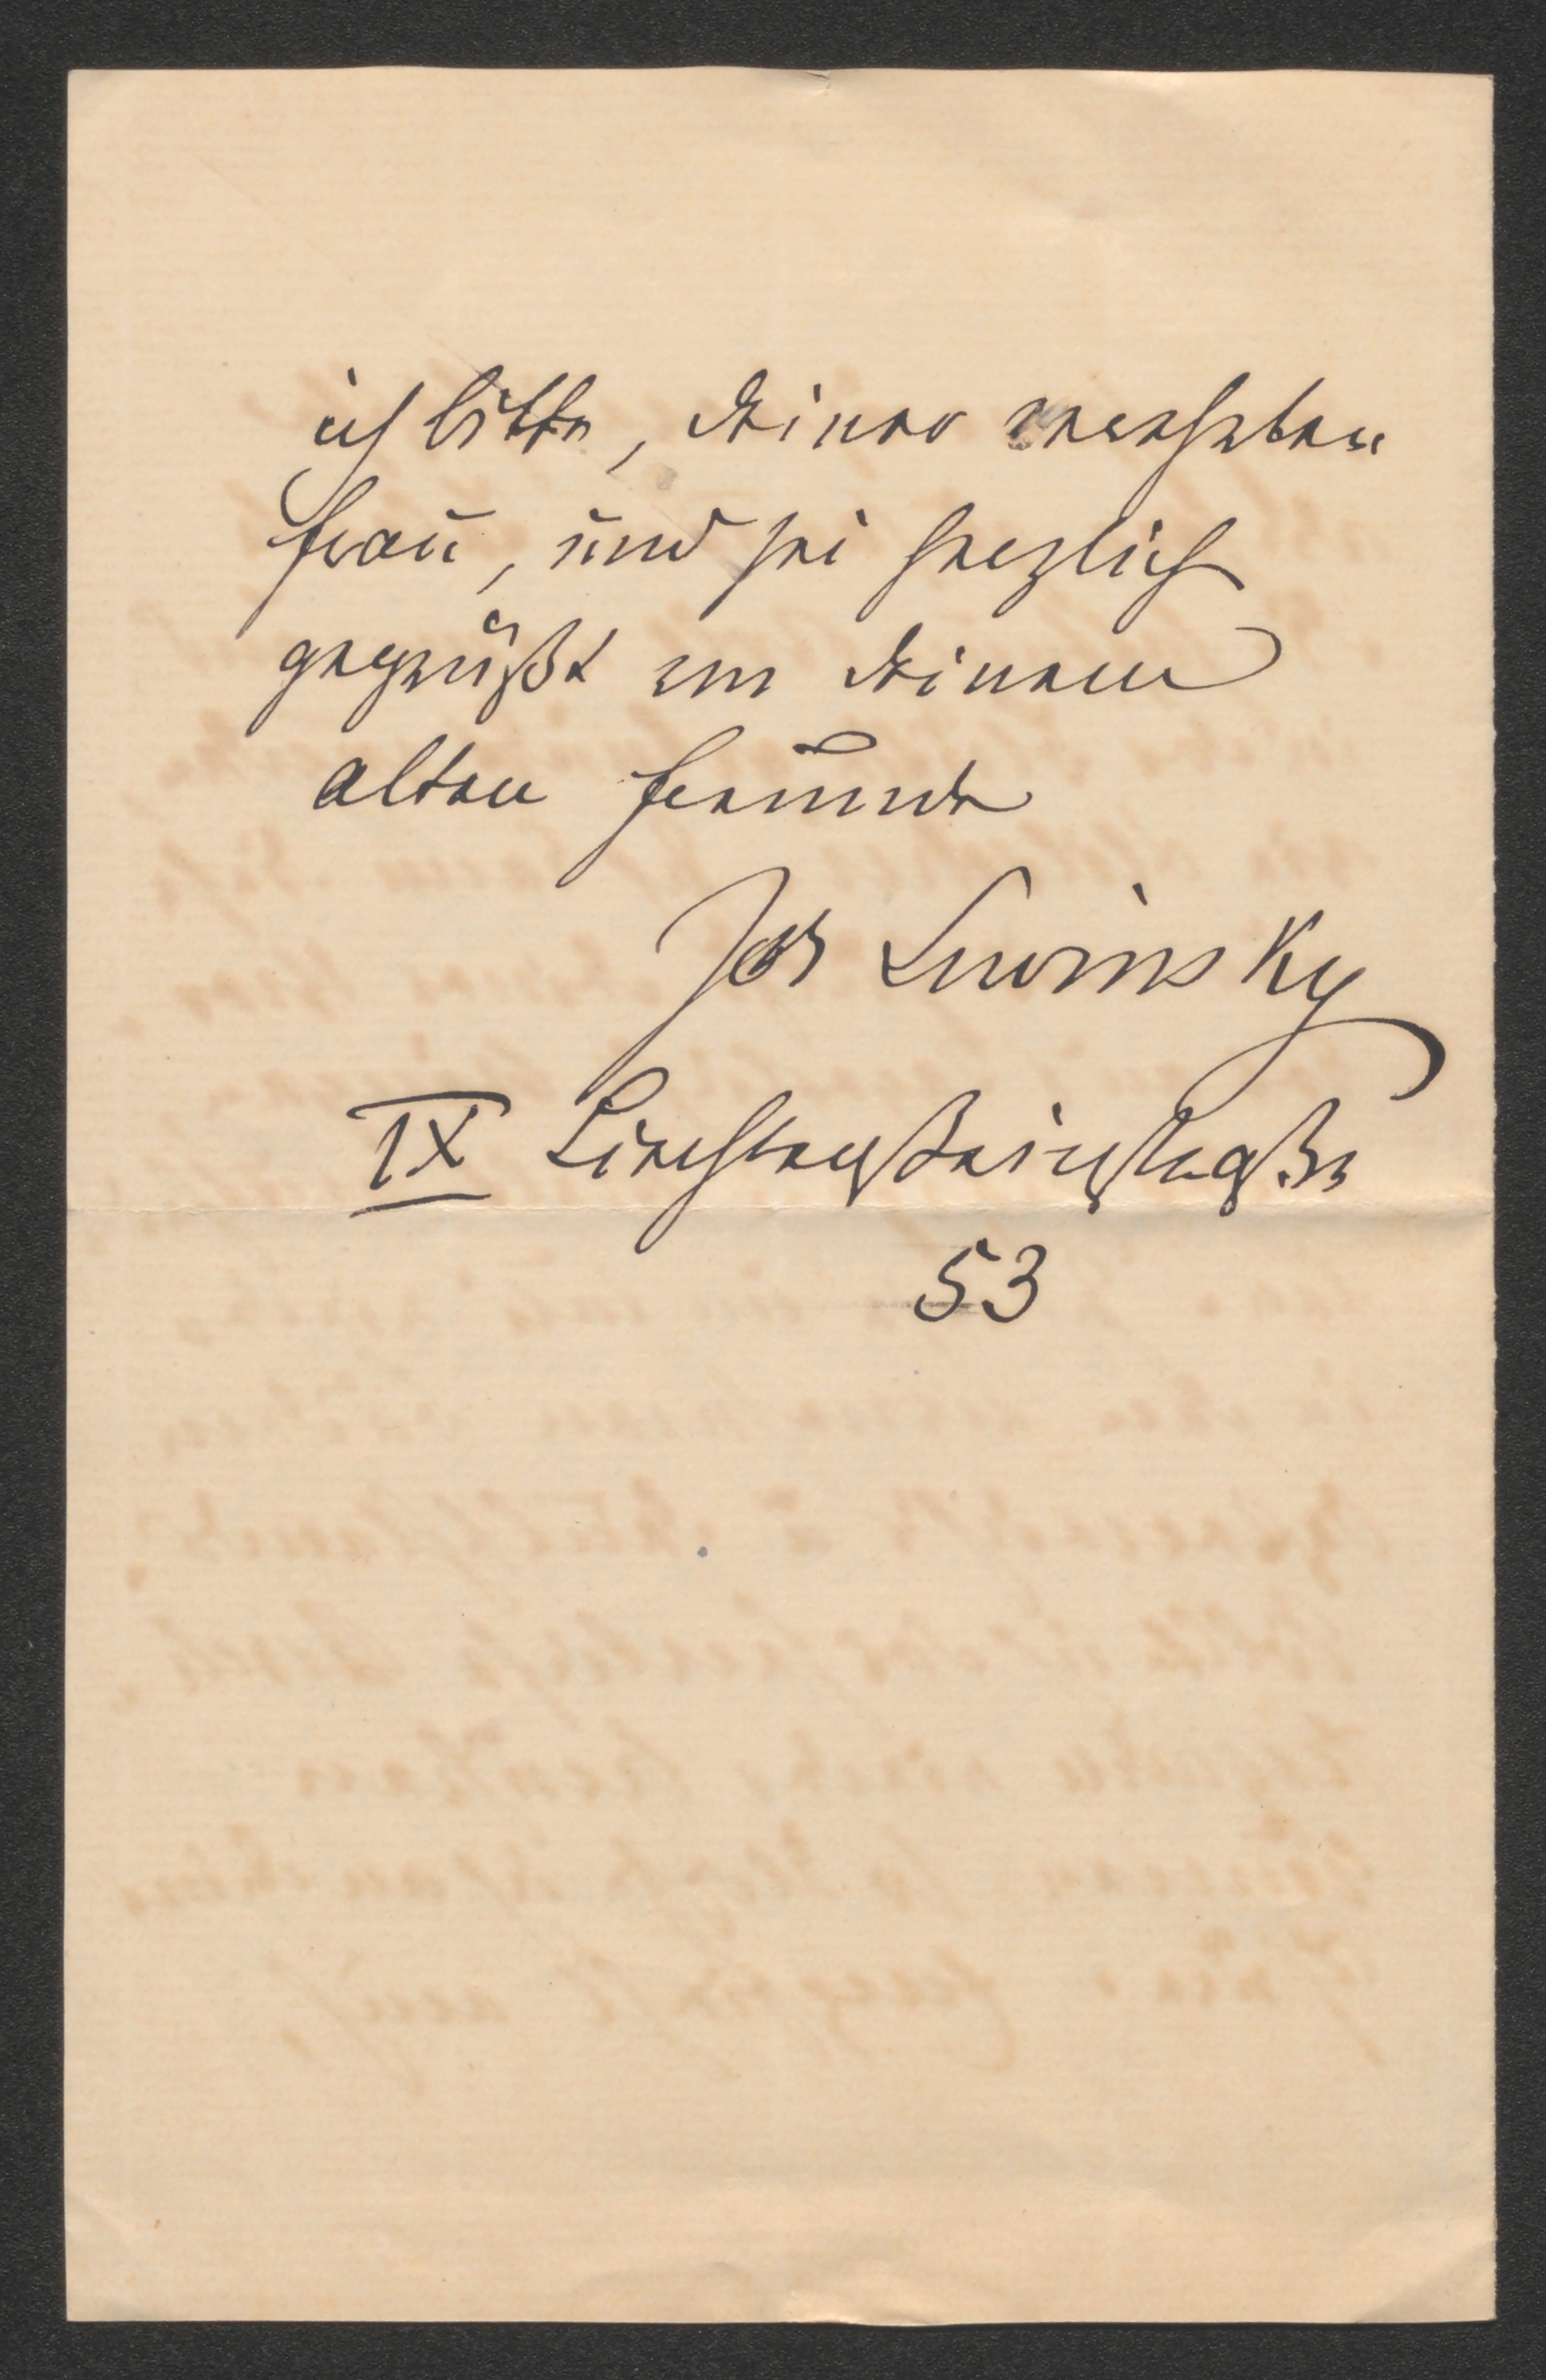 ich bitte, Deiner verehrten
Frau, und sei herzlich
gegrüßt von Deinem
alten Freunde
Jos Lewinsky
IX Liechtensteinstraße
53